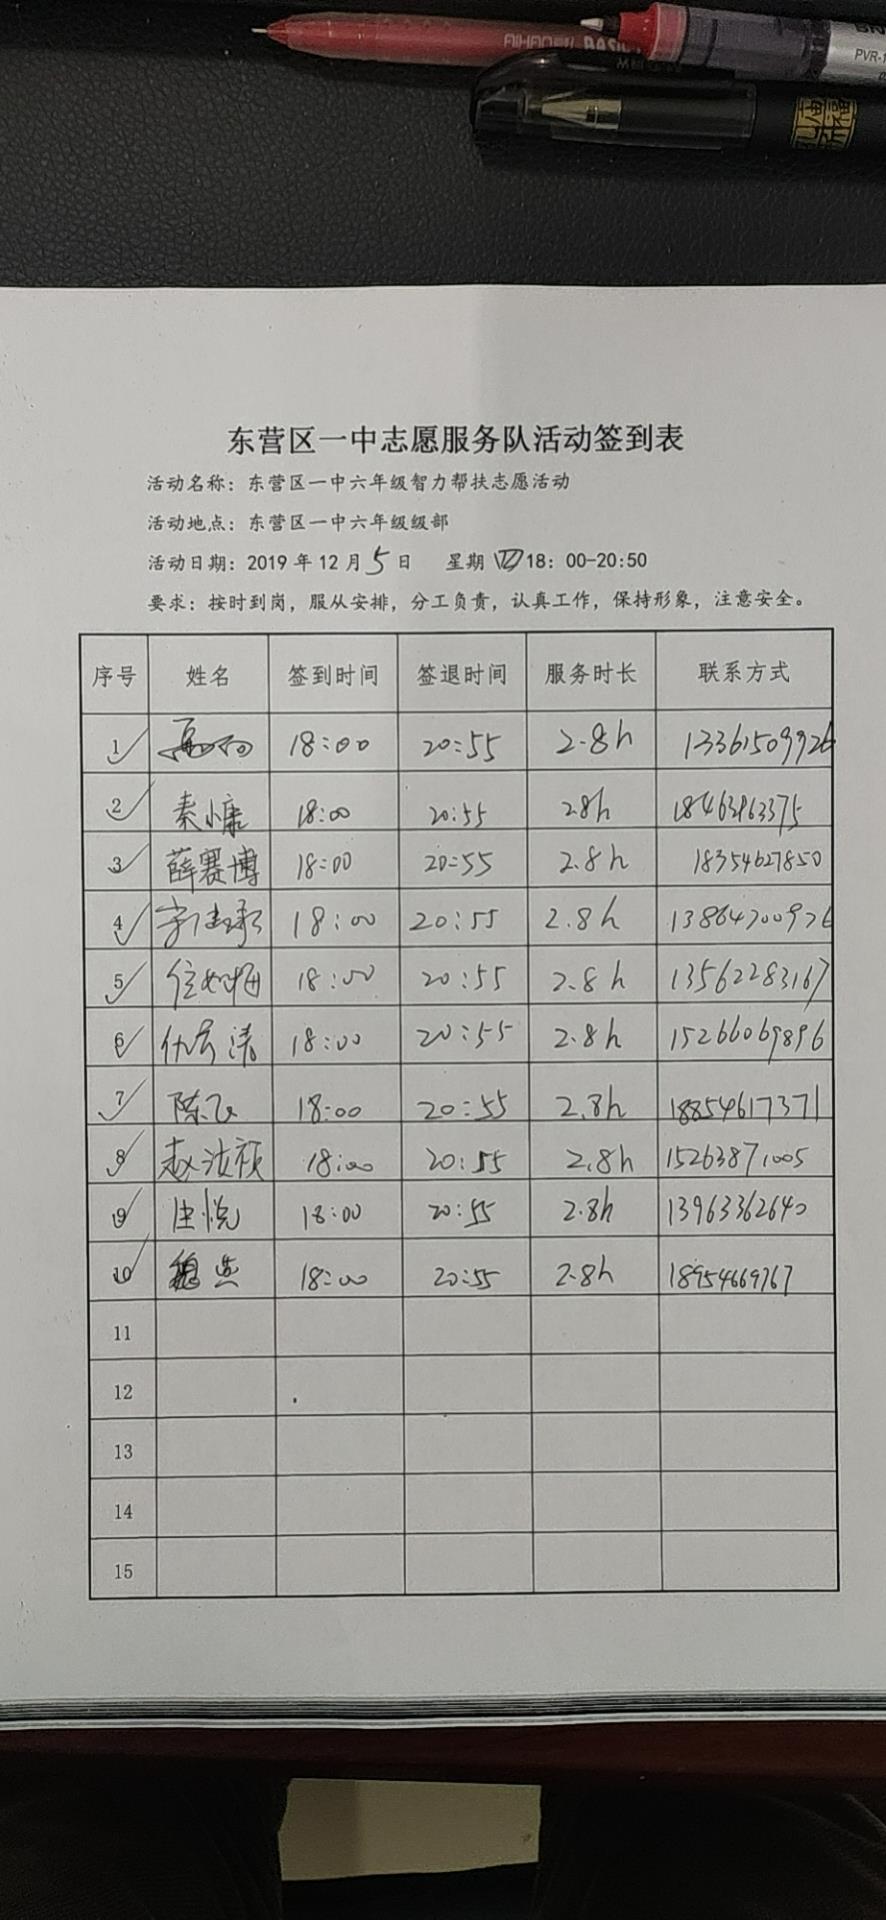 BASIC
PVR-1
东营区一中志愿服务队活动签到表
活动名称：东营区一中六年级智力帮扶志愿活动
活动地点：东营区一中六年级级部
活动日期：2019 年 12 月 5 日 星期 四 18：00-20:50
要求：按时到岗，服从安排，分工负责，认真工作，保持形象，注意安全。
序号 姓名 签到时间 签退时间 服务时长 联系方式
1 18:00 20:55 2.8h 13361509926
2 秦小康 18:00 20:55 2.8h 18463963375
3 薛赛博 18:00 20:55 2.8h 18354627850
4 18:00 20:55 2.8h 13864700926
5 任如梅 18:00 20:55 2.8h 13562283167
6 18:00 20:55 2.8h 15266069896
7 陈飞 18:00 20:55 2.8h 18854617371
8 赵汝颖 18:00 20:55 2.8h 15263871005
9 18:00 20:55 2.8h 13963362640
10 18:00 20:55 2.8h 18954669767
11
12
13
14
15